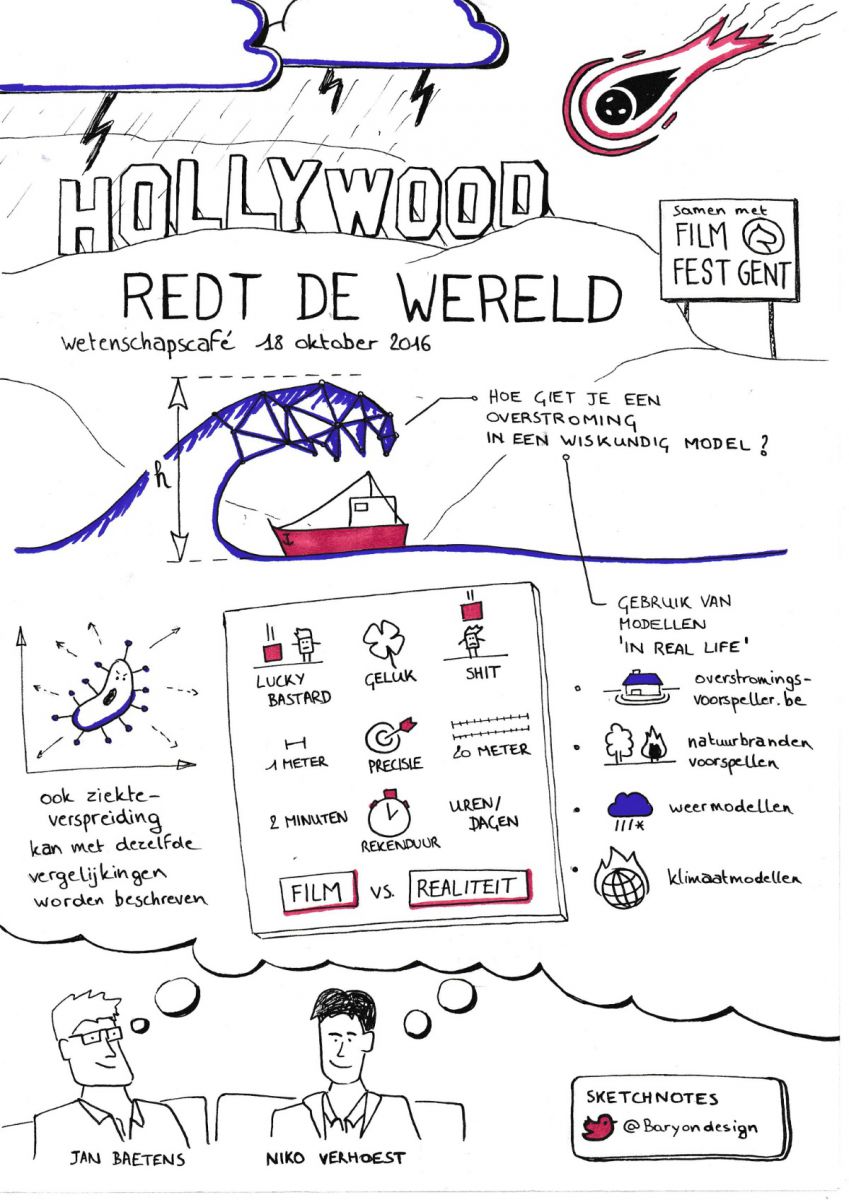 HOLLYWOOD
REDT DE WERELD
wetenschapscafé 18 oktober 2016
samen met
FILM
FEST GENT
h
HOE GIET JE EEN
OVERSTROMING
IN EEN WISKUNDIG MODEL?
GEBRUIK VAN
MODELLEN
'IN REAL LIFE'
overstromings-
voorspeller.be
natuurbranden
voorspellen
weermodellen
klimaatmodellen
ook ziekte-
verspreiding
kan met dezelfde
vergelijkingen
worden beschreven
LUCKY
BASTARD
GELUK
SHIT
1 METER
PRECISIE
20 METER
2 MINUTEN
REKENDUUR
UREN/
DAGEN
FILM VS. REALITEIT
JAN BAETENS
NIKO VERHOEST
SKETCHNOTES
@Baryondesign